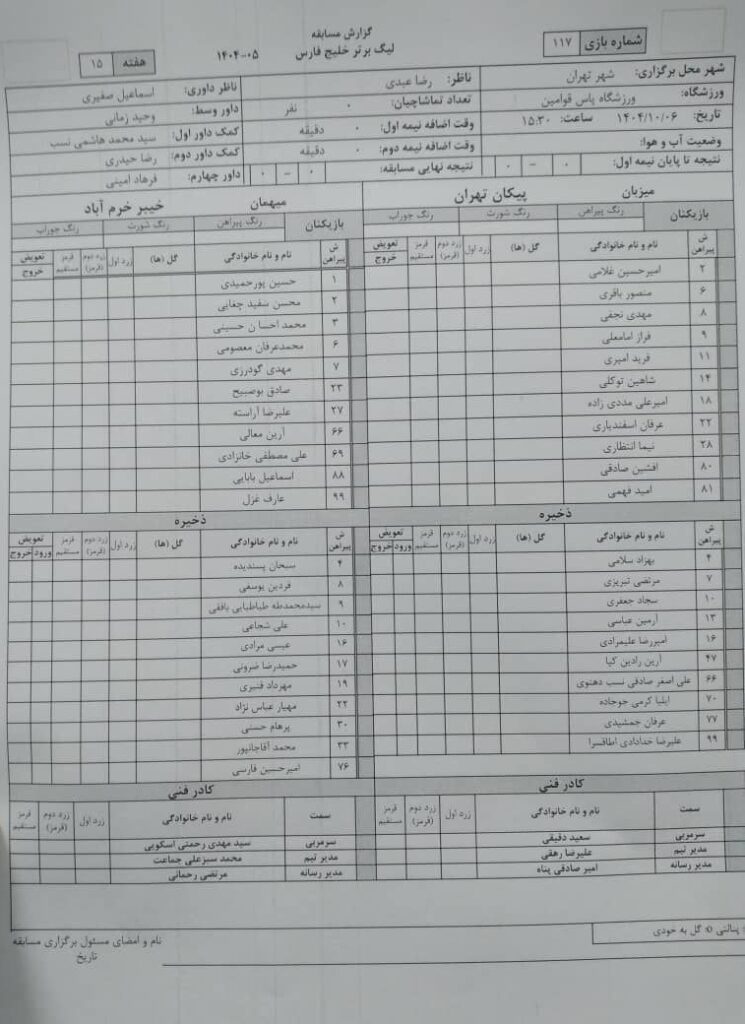 گزارش مسابقه
لیگ برتر خلیج فارس ۰۵-۱۴۰۴
شماره بازی ۱۱۷
هفته ۱۵
شهر محل برگزاری: شهر تهران
ناظر: رضا عبدی
ناظر داوری: اسماعیل صفیری
ورزشگاه: ورزشگاه پاس قوامین
تعداد تماشاچیان: ۰ نفر
داور وسط: وحید زمانی
تاریخ: ۱۴۰۴/۱۰/۰۶ ساعت: ۱۵:۳۰
وقت اضافه نیمه اول: ۰ دقیقه
کمک داور اول: سید محمد هاشمی نسب
وضعیت آب و هوا:
وقت اضافه نیمه دوم: ۰ دقیقه
کمک داور دوم: رضا حیدری
نتیجه تا پایان نیمه اول: ۰ - ۰
نتیجه نهایی مسابقه: ۰ - ۰
داور چهارم: فرهاد امینی
میزبان پیکان تهران
بازیکنان رنگ پیراهن رنگ شورت رنگ جوراب
ش پیراهن نام و نام خانوادگی گل (ها) زرد اول زرد دوم (قرمز) قرمز مستقیم تعویض خروج
۲ امیرحسین غلامی
۶ منصور باقری
۸ مهدی نجفی
۹ فراز امامعلی
۱۱ فرید امیری
۱۴ شاهین توکلی
۱۸ امیرعلی مددی زاده
۲۲ عرفان اسفندیاری
۲۸ نیما انتظاری
۸۰ افشین صادقی
۸۱ امید فهمی
ذخیره
ش پیراهن نام و نام خانوادگی گل (ها) زرد اول زرد دوم (قرمز) قرمز مستقیم تعویض ورود خروج
۴ بهزاد سلامی
۷ مرتضی تبریزی
۱۰ سجاد جعفری
۱۳ آرمین عباسی
۱۶ امیررضا علیمرادی
۴۷ آرین رادین کیا
۶۶ علی اصغر صادقی نسب دهنوی
۷۰ ایلیا کرمی جوجاده
۷۷ عرفان جمشیدی
۹۹ علیرضا خدادادی اطاقسرا
کادر فنی
سمت نام و نام خانوادگی زرد اول زرد دوم (قرمز) قرمز مستقیم
سرمربی سعید دقیقی
مدیر تیم علیرضا رهقی
مدیر رسانه امیر صادقی پناه
میهمان خیبر خرم آباد
بازیکنان رنگ پیراهن رنگ شورت رنگ جوراب
ش پیراهن نام و نام خانوادگی گل (ها) زرد اول زرد دوم (قرمز) قرمز مستقیم تعویض خروج
۱ حسین پورحمیدی
۲ محسن سفید چغایی
۳ محمد احسا ن حسینی
۶ محمدعرفان معصومی
۷ مهدی گودرزی
۲۳ صادق بوصبیح
۲۷ علیرضا آراسته
۶۶ آرین معالی
۶۹ علی مصطفی خانزادی
۸۸ اسماعیل بابایی
۹۹ عارف غزل
ذخیره
ش پیراهن نام و نام خانوادگی گل (ها) زرد اول زرد دوم (قرمز) قرمز مستقیم تعویض ورود خروج
۴ سبحان پسندیده
۸ فردین یوسفی
۹ سیدمحمدطه طباطبایی بافقی
۱۰ علی شجاعی
۱۶ عیسی مرادی
۱۷ حمیدرضا ضرونی
۱۹ مهرداد قنبری
۲۲ مهیار عباس نژاد
۳۰ پرهام حسنی
۳۳ محمد آقاجانپور
۷۶ امیرحسین فارسی
کادر فنی
سمت نام و نام خانوادگی زرد اول زرد دوم (قرمز) قرمز مستقیم
سرمربی سید مهدی رحمتی اسکویی
مدیر تیم محمد سبزعلی جماعت
مدیر رسانه مرتضی رحمانی
: پنالتی O: گل به خودی
نام و امضای مسئول برگزاری مسابقه
تاریخ